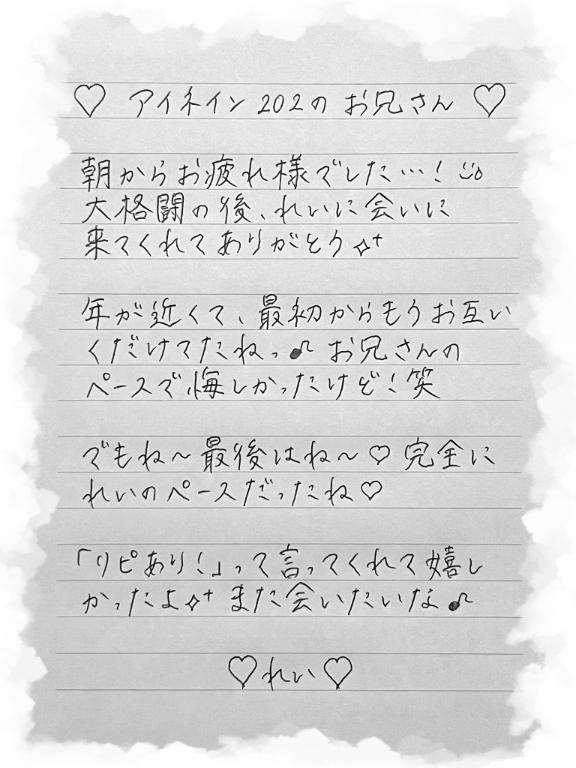 ♡ アイネイン 202の お兄さん ♡
朝からお疲れ様でした…！
大格闘の後、れいに会いに
来てくれてありがとう✧⁺
年が近くて、最初からもうお互い
くだけてたねっ♪ お兄さんの
ペースで悔しかったけど！笑
でもね〜最後はね〜♡ 完全に
れいのペースだったね♡
「リピあり！」って言ってくれて嬉し
かったよ✧⁺ また会いたいな♪
♡れい♡